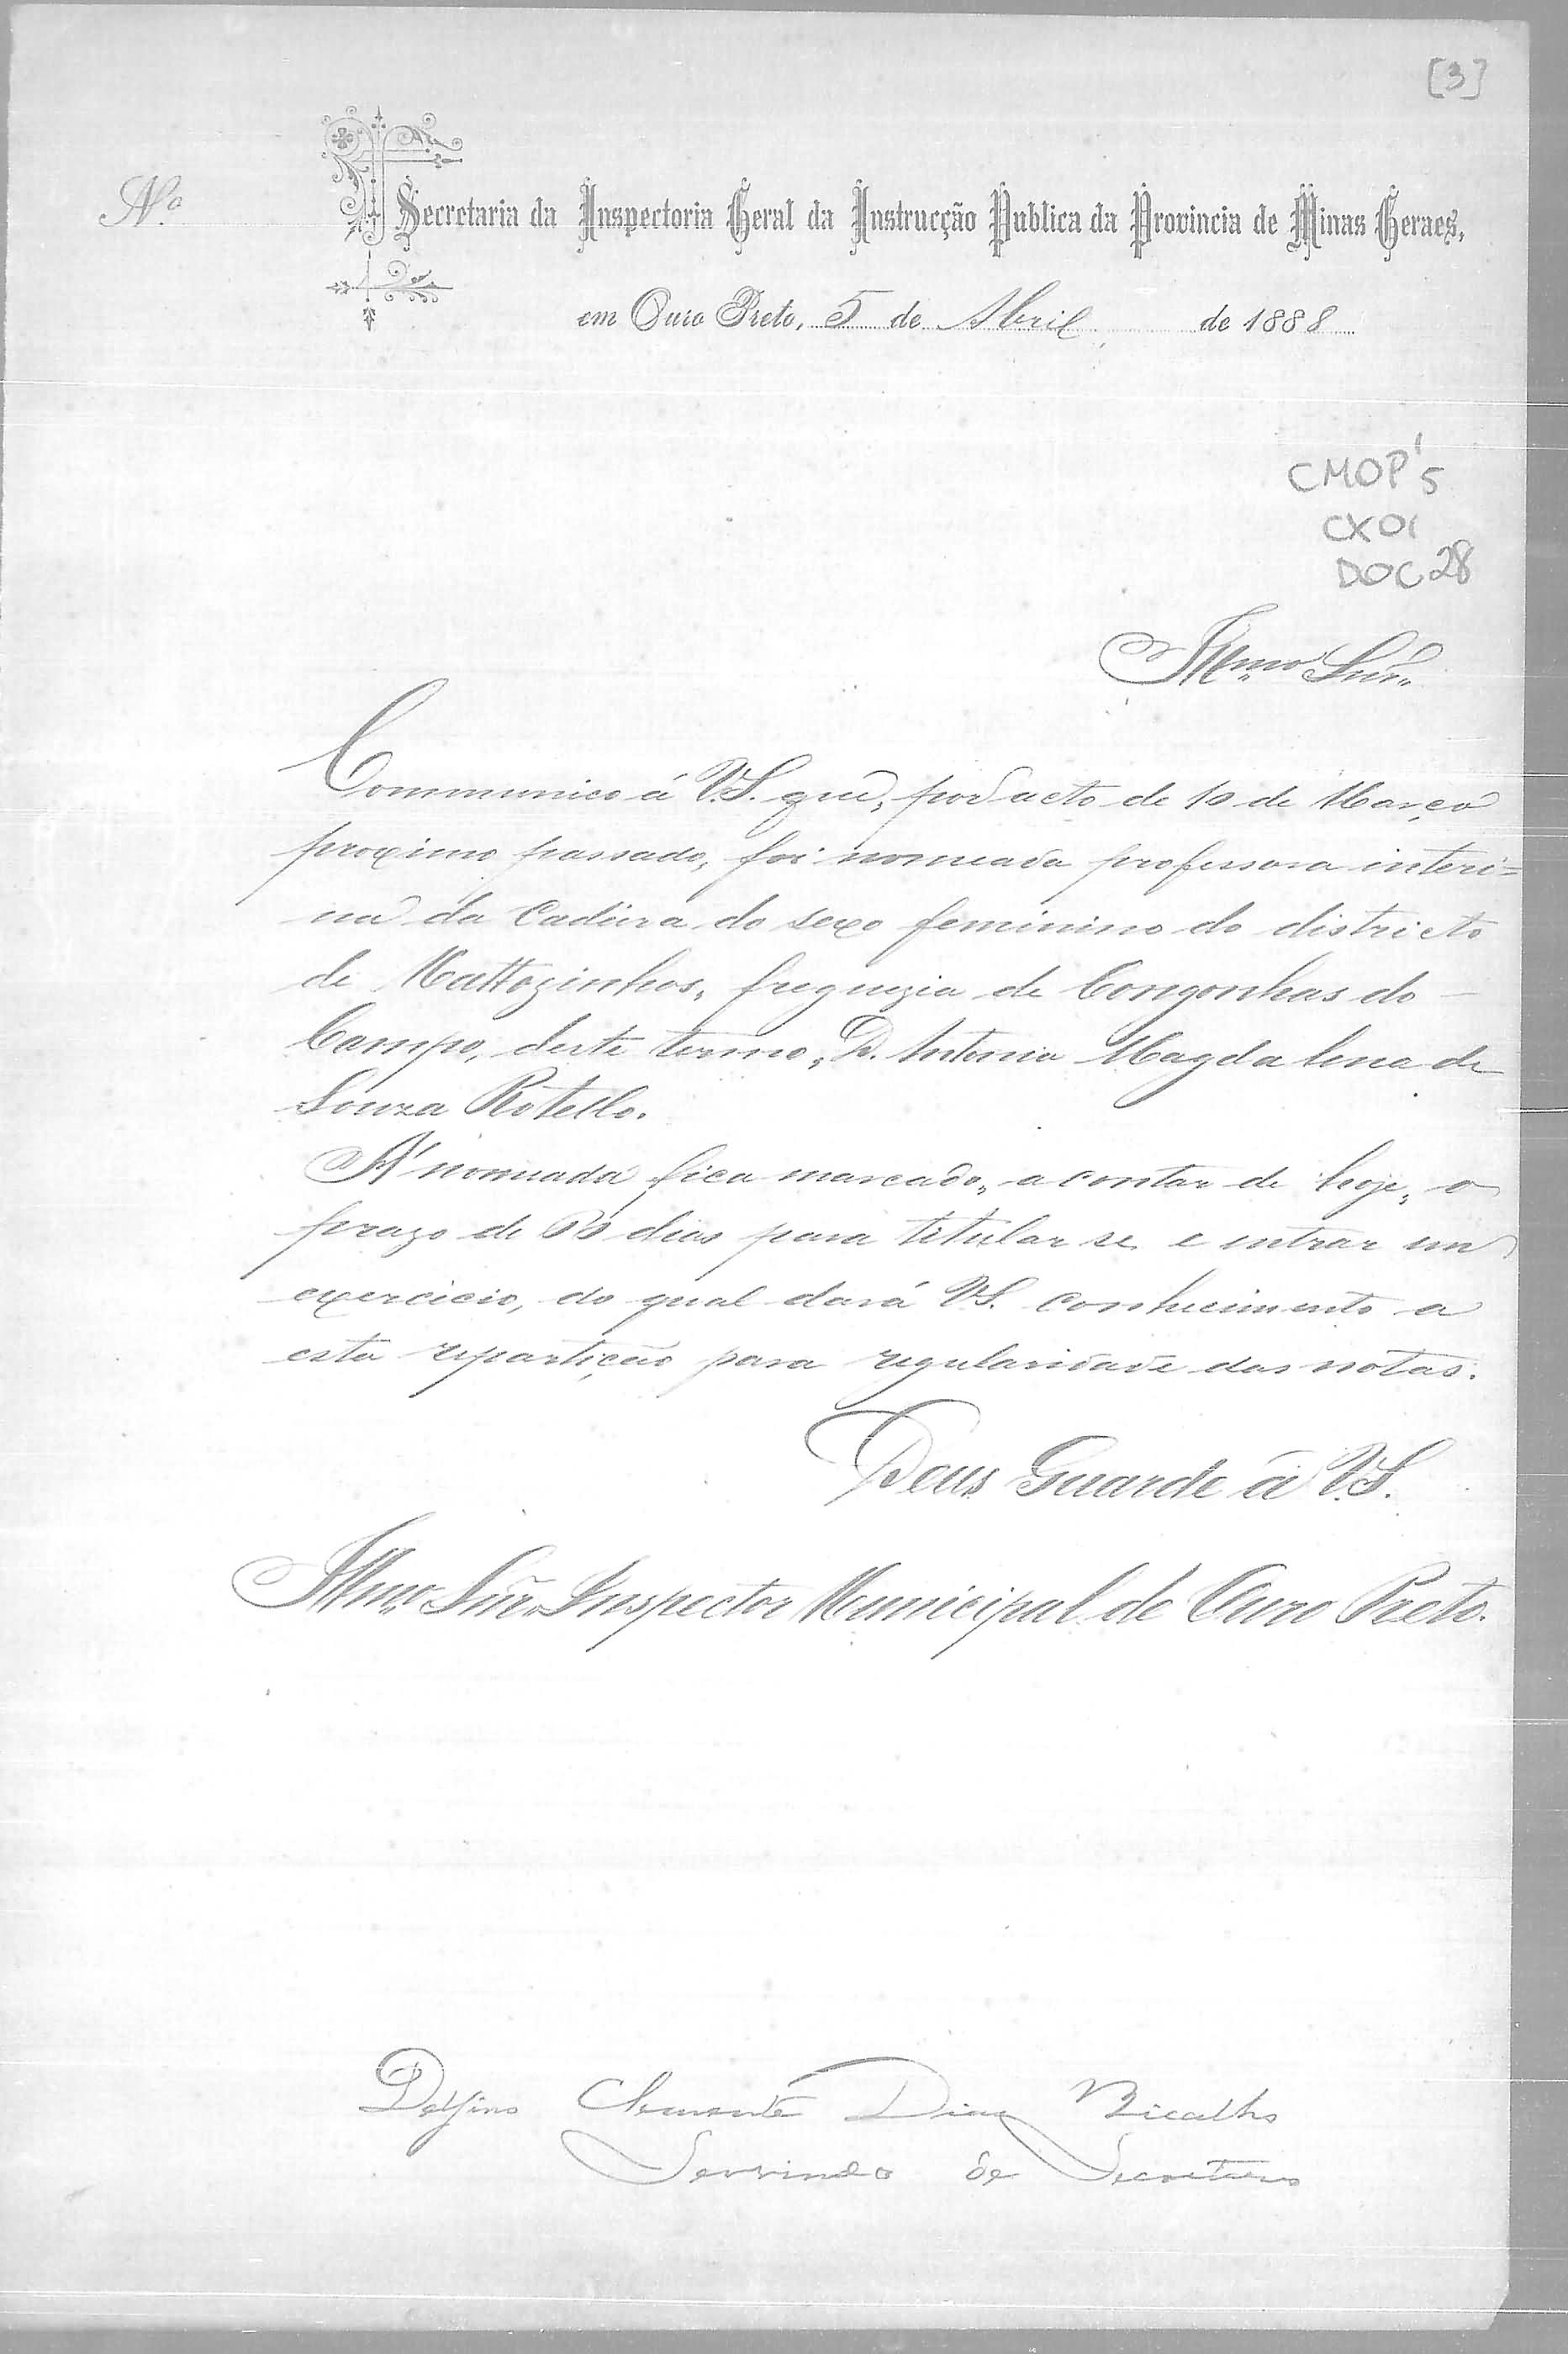 [3]
Nº
Secretaria da Inspectoria Geral da Instrucção Publica da Provincia de Minas Geraes,
em Ouro Preto, 5 de Abril de 1888
CMOP 5
CX 01
DOC 28
Illmo Snr.
Communico á V.S. que, por acto de 10 de Março
proximo passado, foi nomeada professora interi=
na da Cadeira do sexo feminino do districto
de Mattozinhos, freguezia de Congonhas do
Campo, deste termo, D. Antonia Magdalena de
Souza Rotello.
A' nomeada fica marcado, a contar de hoje, o
prazo de dias para titular se e entrar em
exercicio, do qual dará V.S. conhecimento a
esta repartição para regularidade das notas.
Deus Guarde á V.S.
Illmo. Snr. Inspector Municipal de Ouro Preto.
Delfino Clemente Dias Bicalho
Servindo de Secretario